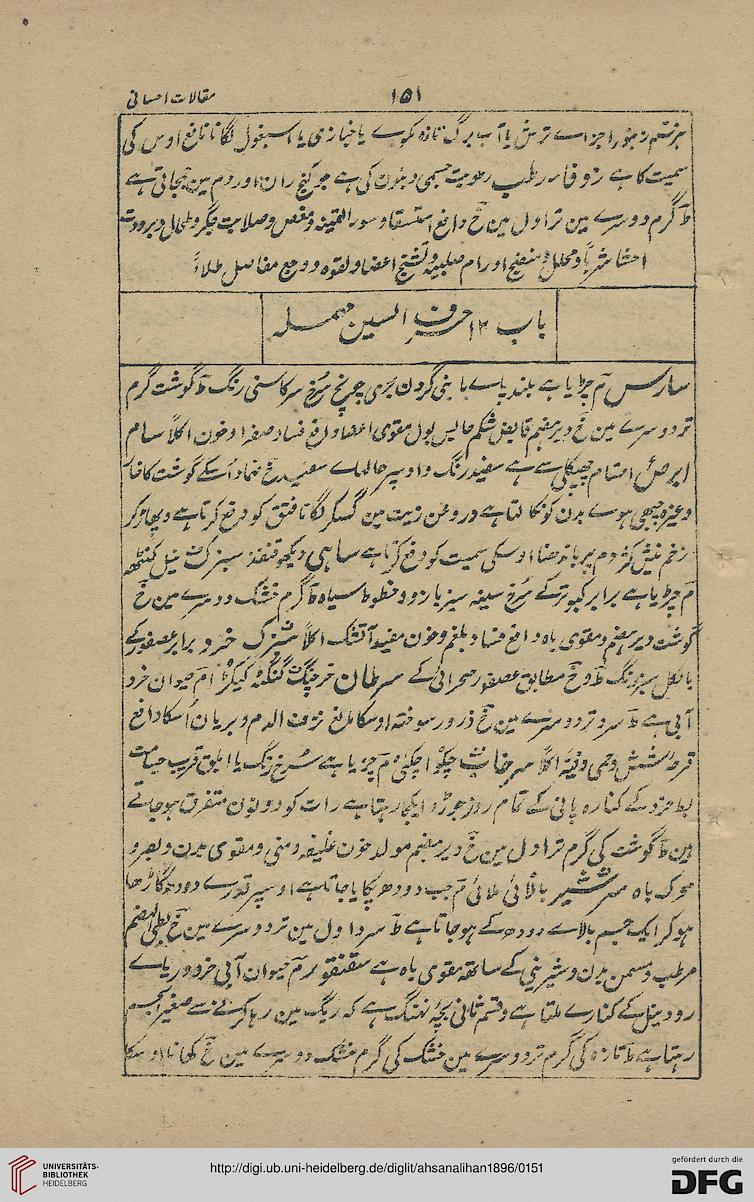 مقالات احسانی
۱۵۱
سمیت کا ہے زوفاے رطب رطوبت جسمی دنبلون کی ہے جو کنج ران اور دم مین جمجاتی ہے
ط گرم دوسرے مین تر اول مین خ دافع استسقا و سوء القنیہ و مغص و صلابت جگر و طحال و برودت
احشا شرباً و محلل و منضج اورام صلبیہ و تشنج اعضا و لقوہ و وجع مفاصل طلاءً
باب ۱۲ حرف السین مہملہ
سارس م چڑیا ہے بلند پاے با بینی گردن بڑی چونچ سُرخ سر کاسنی رنگ ط گوشت گرم
تر دوسرے مین خ دیر ہضم قابض شکم حابس بول مقوی اعضا و دافع فساد صفرا و خون اکلاً سام
ابرص اقسام چھپکلی سے ہے سفید رنگ و اوسپر خالہاے سفید خ ضماد اسکے گوشت کا خار
وغیرہ چبھی ہوے بدن کو نکالتا ہے و روغن زیت مین گھسکر لگانا فتق کو دفع کرتا ہے و پھاڑ کر
زخم نیش کژدم پر باندھنا اوسکی سمیت کو دفع کرتا ہے ساہی دیکھو قنفذ سبزک نیل کنٹھ
م چڑیا ہے برابر کبوتر کے سُرخ سینہ سبز بازو و خطوط سیاہ ط گرم خشک دوسرے مین خ
گوشت دیر ہضم و مقوی باہ دافع فساد بلغم و خون مفید آتشک اکلاً سبزک خرد برابر عصفور کے
بالکل سبز رنگ ط و خ مطابق عصفور صحرائی کے سرطان خرچنگ گنگٹہ کیکڑا م حیوان خرد
آبی ہے ط سرد تر دوسرے مین خ ذرور سوختہ اوسکا مانع نزف الدم و بریان اُسکا دافع
قرحہ شش وحمی دقیہ اکلاً سرخاب چکوا چکئی م چڑیا ہے سُرخ رنگ یا ابلق قریب جسامت
بط خرد کے کنارہ پانی کے تمام روز جوڑہ ایکجا رہتا ہے رات کو دونون متفرق ہوجاتے
ہین ط گوشت کی گرم تر اول مین خ دیر ہضم مولد خون غلیظ و منی و مقوی بدن و بصر و
محرک باہ سرشیر بالائی ملائی م جب دودھ پکایا جاتا ہے اوسپر قدرے دودھ گاڑھا
ہوکر ایک جسم بالاے دودھ کے ہوجاتا ہے ط سرد اول مین تر دوسرے مین خ بطی الہضم
مرطب و مسمن بدن و شیرینی کے ساتھ مقوی باہ ہے سقنقور م حیوان آبی خرد دریاے
رود نیل کے کنارے ملتا ہے و قسم ثانی بچۂ نہنگ ہے کہ ریگ مین رہا کرنے سے صغیر الجسم
رہتا ہے ط تازہ کی گرم تر دوسرے مین خشک کی گرم خشک دوسرے مین خ کھانا اوسکا
UNIVERSITÄTS-
BIBLIOTHEK
HEIDELBERG
http://digi.ub.uni-heidelberg.de/diglit/ahsanalihan1896/0151
gefördert durch die
DFG